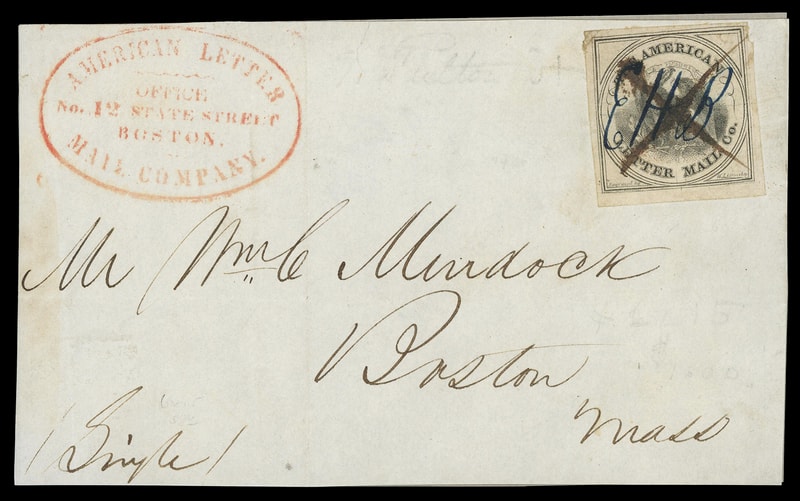 AMERICAN LETTER
OFFICE
No. 12 STATE STREET
BOSTON.
MAIL COMPANY.
AMERICAN
EHB
LETTER MAIL Co.
Mr Wm C Murdock
Boston
Mass
(Single)